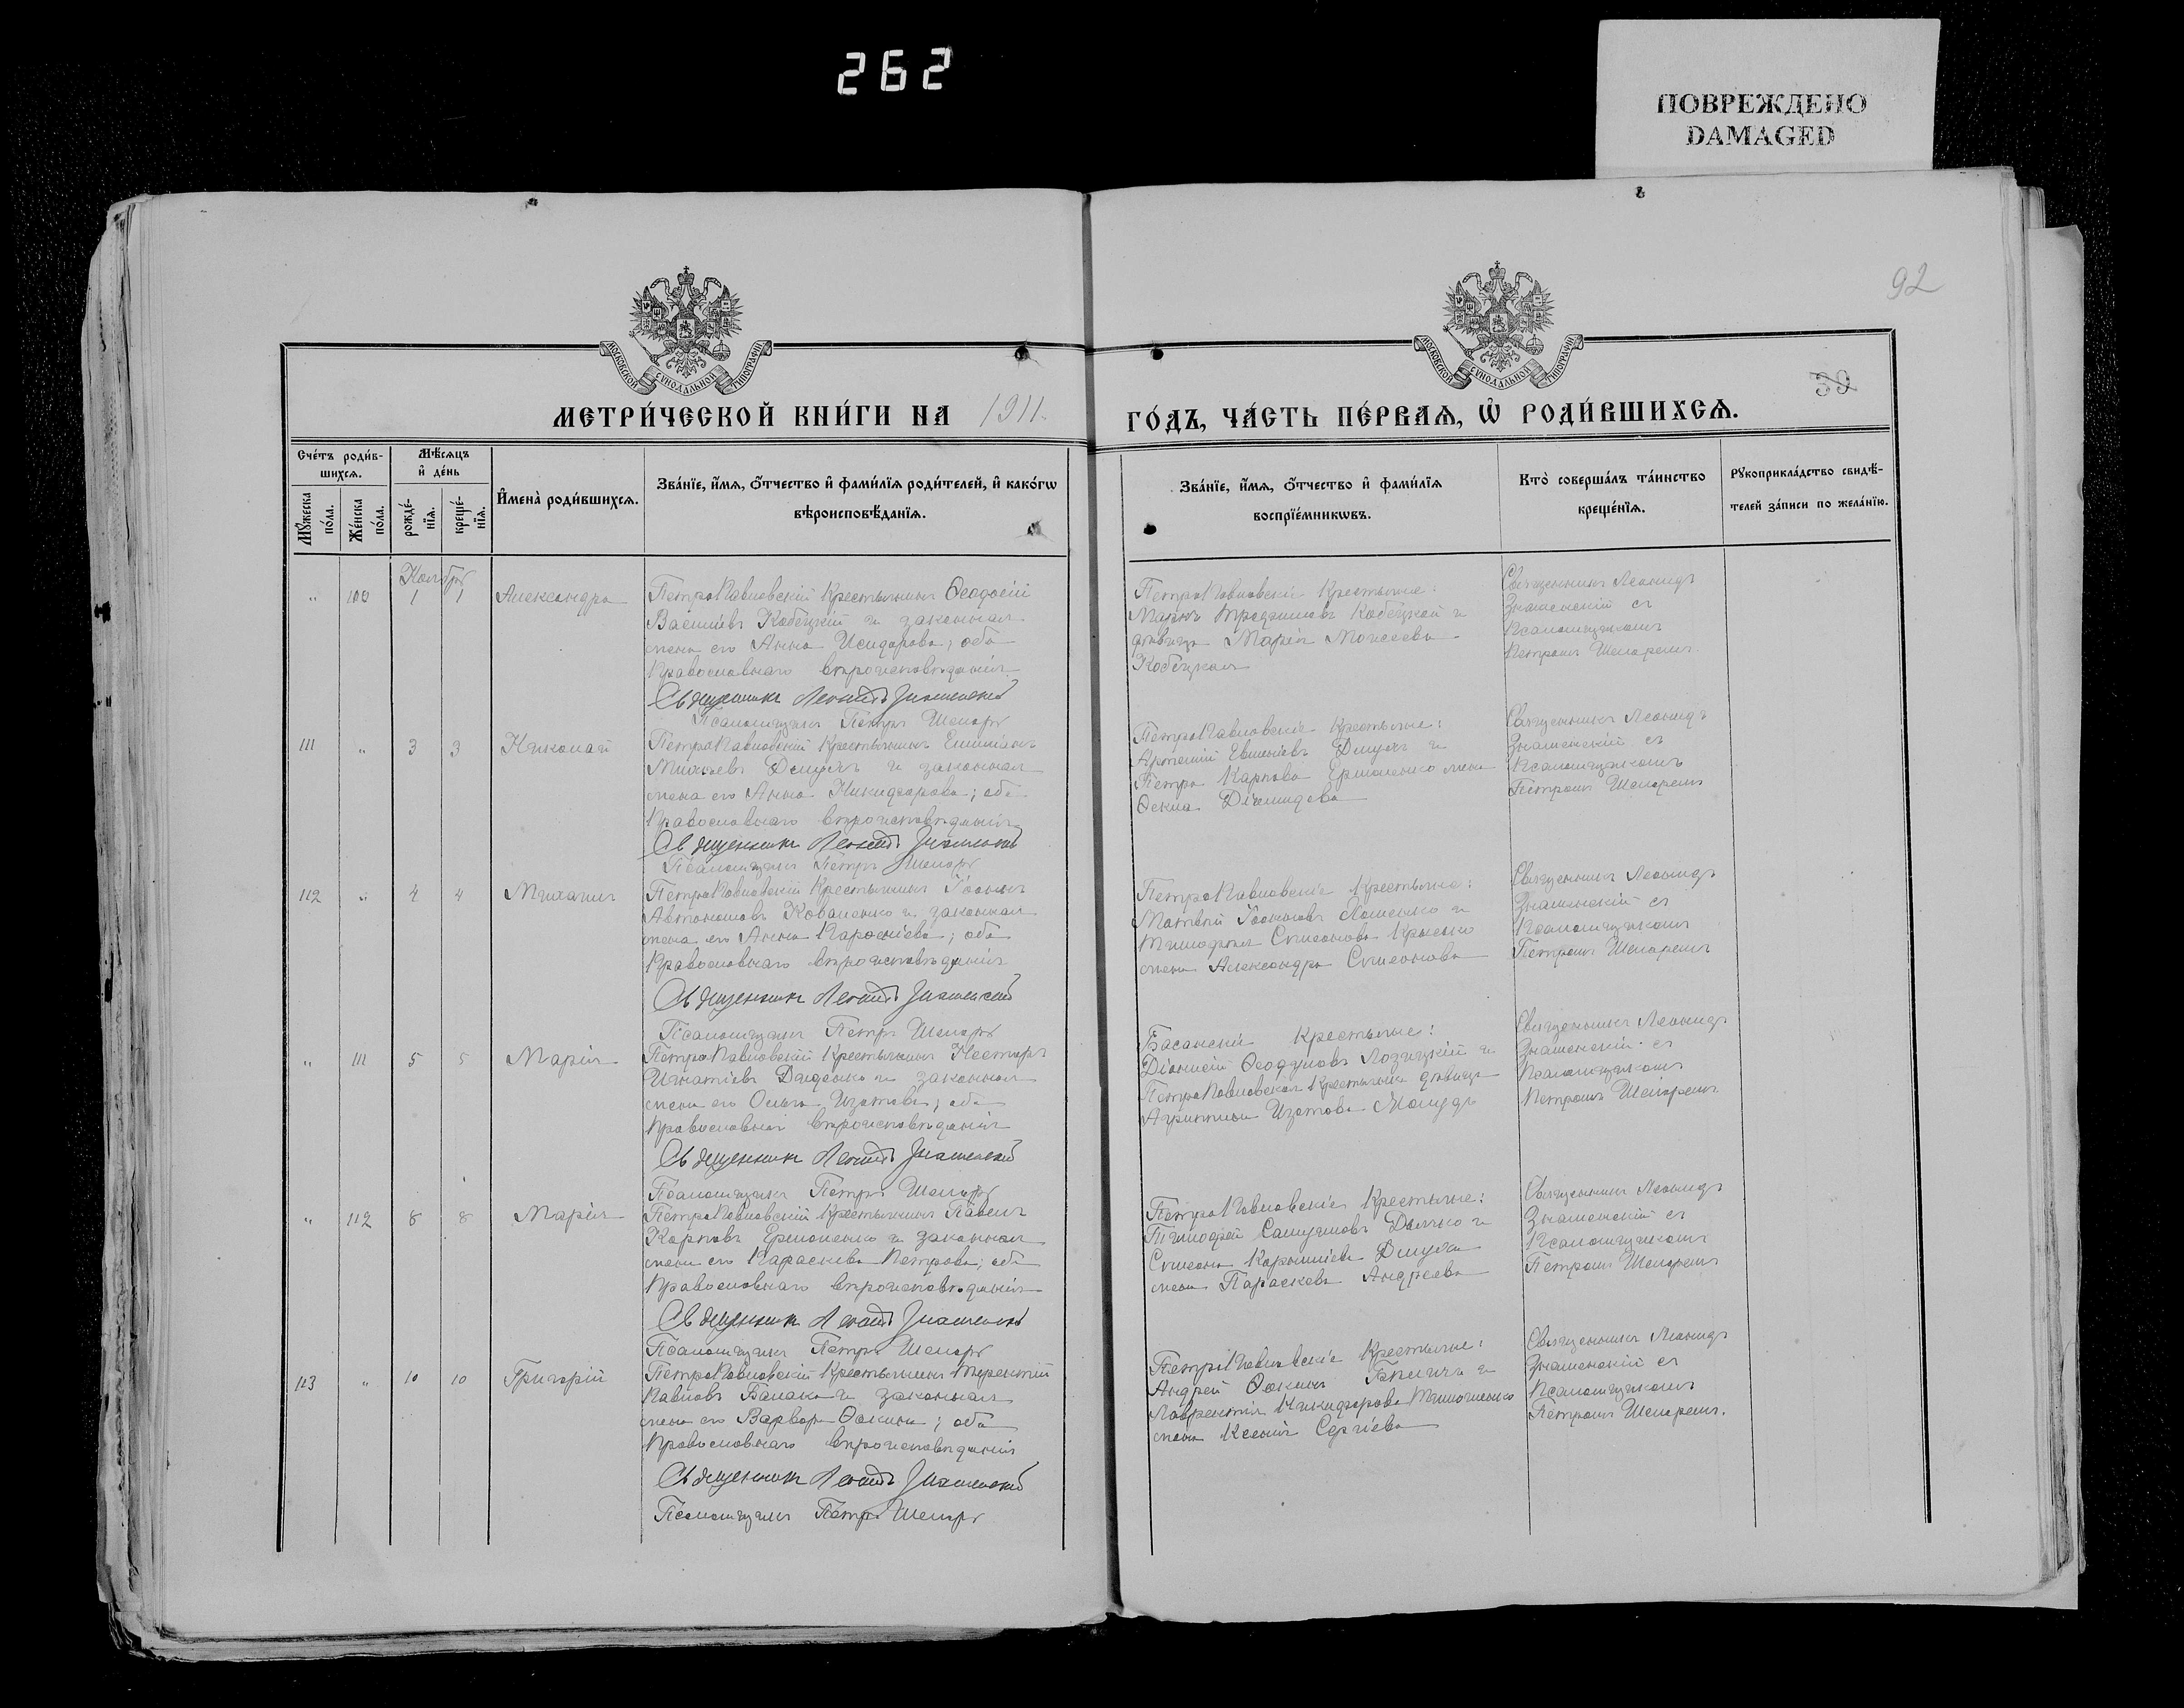 262
ПОВРЕЖДЕНО
DAMAGED
92
МОСКОВСКОЙ СУНОДАЛЬНОЙ ТИПОГРАФІИ
МОСКОВСКОЙ СУНОДАЛЬНОЙ ТИПОГРАФІИ
39
МЕТРИ́ЧЕСКОЙ КНИ́ГИ НА 1911
ГО́ДЪ, ЧА́СТЬ ПЕ́РВАѦ, Ѡ҆ РОДИ́ВШИХСѦ.
Сче́тъ роди́в-
шихсѧ.
Мѣ́сѧцъ
и҆ де́нь
Мꙋ́жеска
по́ла.
Же́нска
по́ла.
рожде́-
нїѧ.
креще́-
нїѧ.
И҆мена̀ роди́вшихсѧ.
Зва́нїе, и҆́мѧ, ѻ҆́тчество и҆ фами́лїѧ роди́телей, и҆ како́гѡ
вѣроисповѣ́данїѧ.
Зва́нїе, и҆́мѧ, ѻ҆́тчество и҆ фами́лїѧ
воспрїе́мникѡвъ.
Кто̀ соверша́лъ та́инство
креще́нїѧ.
Рꙋкоприкла́дство свидѣ́-
телей за́писи по жела́нїю.
Ноябрь
" 110 1 1 Александра
ПетроПавловскій Крестьянинъ Ѳеодосій
Васильевъ Кобецкій и законная
жена его Анна Исидорова; оба
Православнаго вѣроисповѣданія
Священникъ Леонидъ Знаменскій
Псаломщикъ Петръ Шепаръ
ПетроПавловскіе Крестьяне:
Кобецкой и
дѣвица Марія Моисеева
Кобецкая
Священникъ Леонидъ
Знаменскій съ
Псаломщикомъ
Петромъ Шепаремъ
111 " 3 3 Николай
ПетроПавловскій Крестьянинъ Емиліанъ
Дмухъ и законная
жена его Анна Никифорова; оба
Православнаго вѣроисповѣданія
Священникъ Леонидъ Знаменскій
Псаломщикъ Петръ Шепаръ
ПетроПавловскіе Крестьяне:
Артемій Евменіевъ Дмухъ и
Петра Карпова Ермоленко жена
Ѳекла
Священникъ Леонидъ
Знаменскій съ
Псаломщикомъ
Петромъ Шепаремъ
112 " 4 4 Михаилъ
ПетроПавловскій Крестьянинъ Іоаннъ
Автономовъ Коваленко и законная
жена его Анна; оба
Православнаго вѣроисповѣданія
Священникъ Леонидъ Знаменскій
Псаломщикъ Петръ Шепаръ
ПетроПавловскіе Крестьяне:
Матвѣй Іоанновъ и
Тимофея Симеонова
жена Александра Симеонова
Священникъ Леонидъ
Знаменскій съ
Псаломщикомъ
Петромъ Шепаремъ
" 111 5 5 Марія
ПетроПавловскій Крестьянинъ Несторъ
Игнатіевъ и законная
жена его Ольга Изотова; оба
Православнаго вѣроисповѣданія
Священникъ Леонидъ Знаменскій
Псаломщикъ Петръ Шепаръ
Басанскій Крестьяне:
Діонисій Ѳеодуловъ Лозицкій и
ПетроПавловская Крестьянка дѣвица
Агриппина Изотова
Священникъ Леонидъ
Знаменскій съ
Псаломщикомъ
Петромъ Шепаремъ
" 112 8 8 Марія
ПетроПавловскій Крестьянинъ Павелъ
Карповъ Ермоленко и законная
жена его Параскева Петрова; оба
Православнаго вѣроисповѣданія
Священникъ Леонидъ Знаменскій
Псаломщикъ Петръ Шепаръ
ПетроПавловскіе Крестьяне:
Тимофей и
Симеона Корниліева Дмуха
жена Параскева Андреева
Священникъ Леонидъ
Знаменскій съ
Псаломщикомъ
Петромъ Шепаремъ
113 " 10 10 Григорій
ПетроПавловскій Крестьянинъ Терентій
Павловъ и законная
жена его Варвара Ѳокина; оба
Православнаго вѣроисповѣданія
Священникъ Леонидъ Знаменскій
Псаломщикъ Петръ Шепаръ
ПетроПавловскіе Крестьяне:
Андрей Ѳокинъ и
Лаврентія Никифорова Тимошенко
жена Ксенія Сергіева
Священникъ Леонидъ
Знаменскій съ
Псаломщикомъ
Петромъ Шепаремъ.